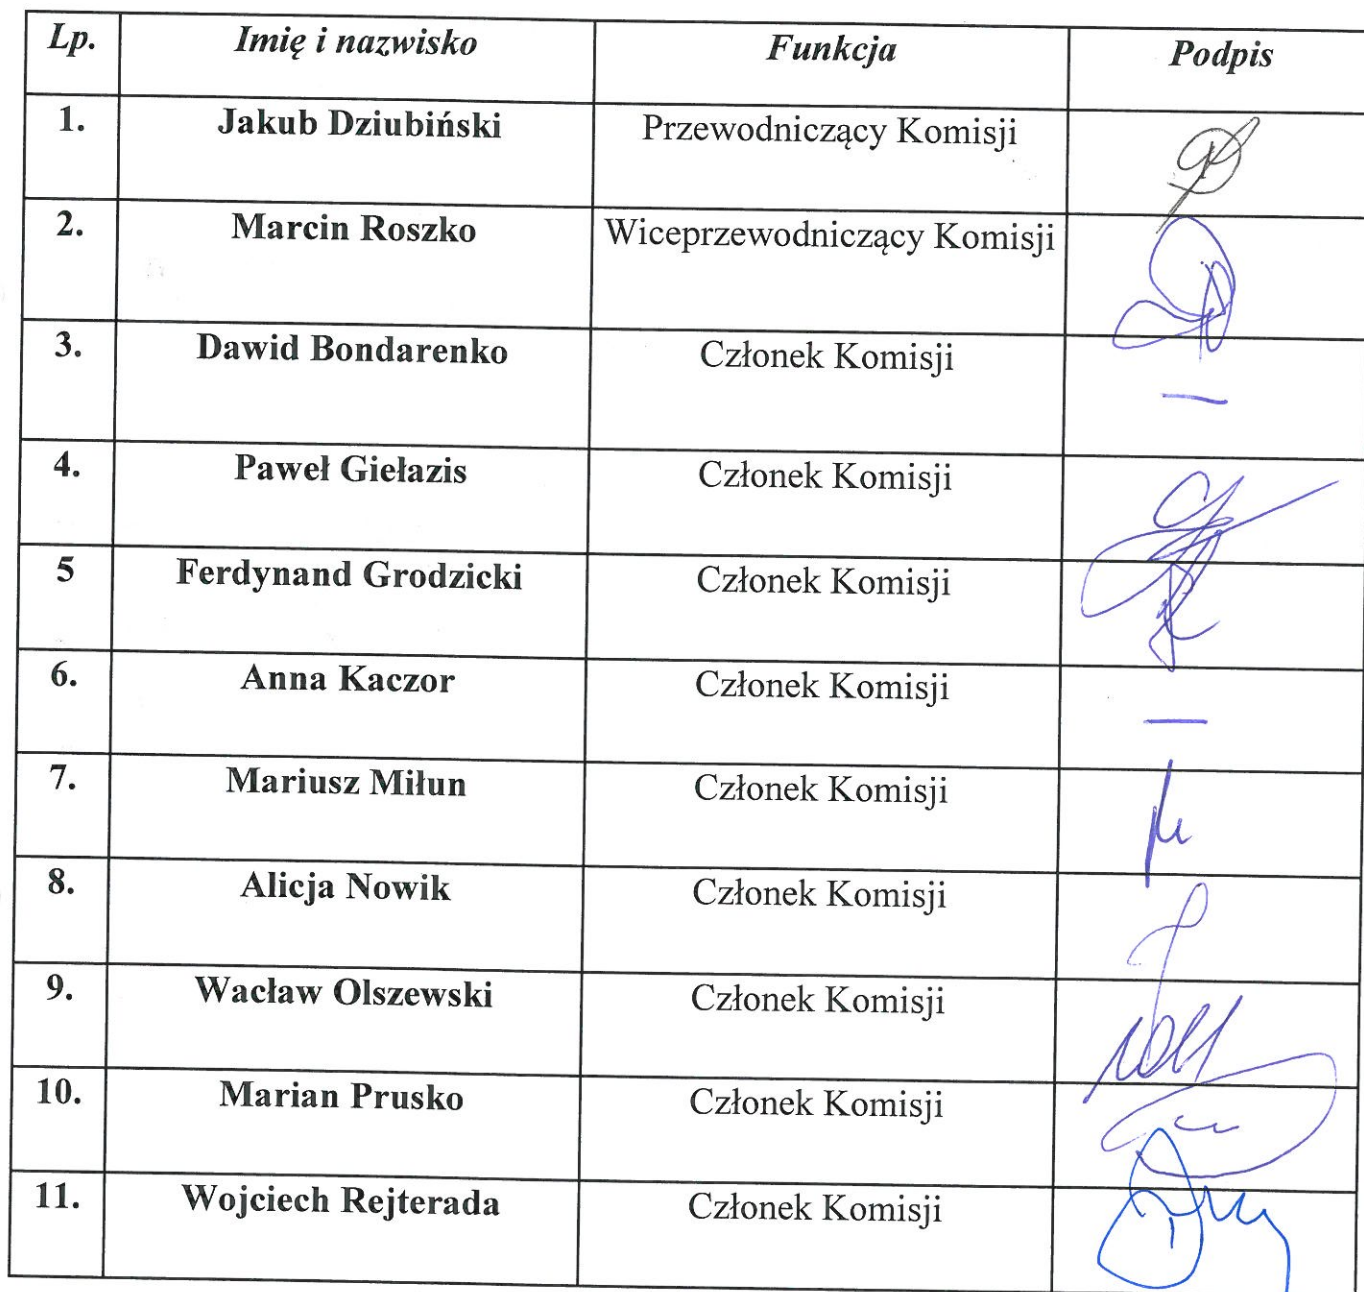 Lp. Imię i nazwisko Funkcja Podpis
1. Jakub Dziubiński Przewodniczący Komisji
2. Marcin Roszko Wiceprzewodniczący Komisji
3. Dawid Bondarenko Członek Komisji —
4. Paweł Giełazis Członek Komisji
5 Ferdynand Grodzicki Członek Komisji
6. Anna Kaczor Członek Komisji —
7. Mariusz Miłun Członek Komisji
8. Alicja Nowik Członek Komisji
9. Wacław Olszewski Członek Komisji
10. Marian Prusko Członek Komisji
11. Wojciech Rejterada Członek Komisji